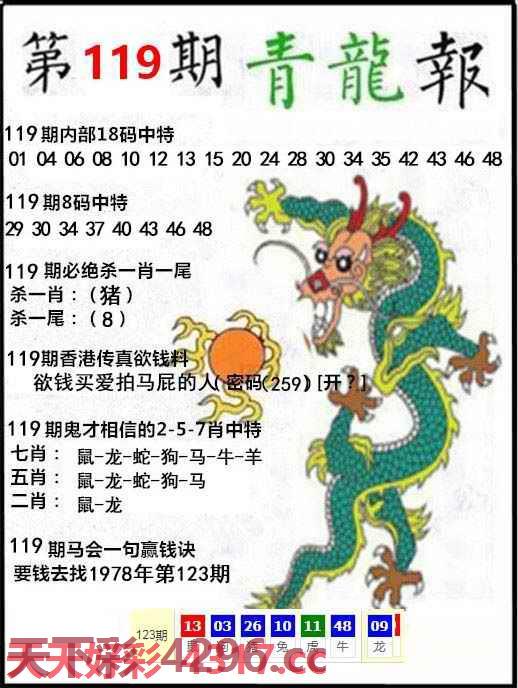 第119期青龍報
119期内部18码中特
01 04 06 08 10 12 13 15 20 24 28 30 34 35 42 43 46 48
119期8码中特
29 30 34 37 40 43 46 48
119期必绝杀一肖一尾
杀一肖：（猪）
杀一尾：（8）
119期香港传真欲钱料
欲钱买爱拍马屁的人(密码(259)[开?]
119期鬼才相信的2-5-7肖中特
七肖： 鼠-龙-蛇-狗-马-牛-羊
五肖： 鼠-龙-蛇-狗-马
二肖： 鼠-龙
119期马会一句赢钱诀
要钱去找1978年第123期
123期 13 03 26 10 11 48 09
兔 虎 牛 龙
天天好彩 .cc